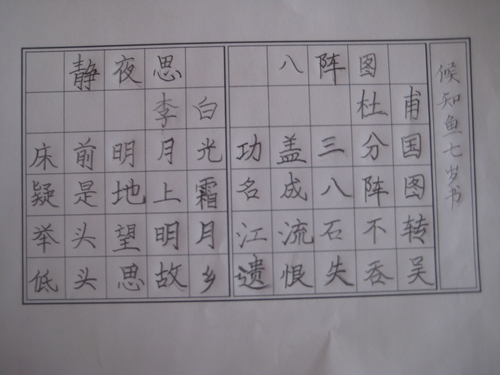 静夜思
李白
床前明月光
疑是地上霜
举头望明月
低头思故乡
八阵图
杜甫
功盖三分国
名成八阵图
江流石不转
遗恨失吞吴
候知鱼七岁书